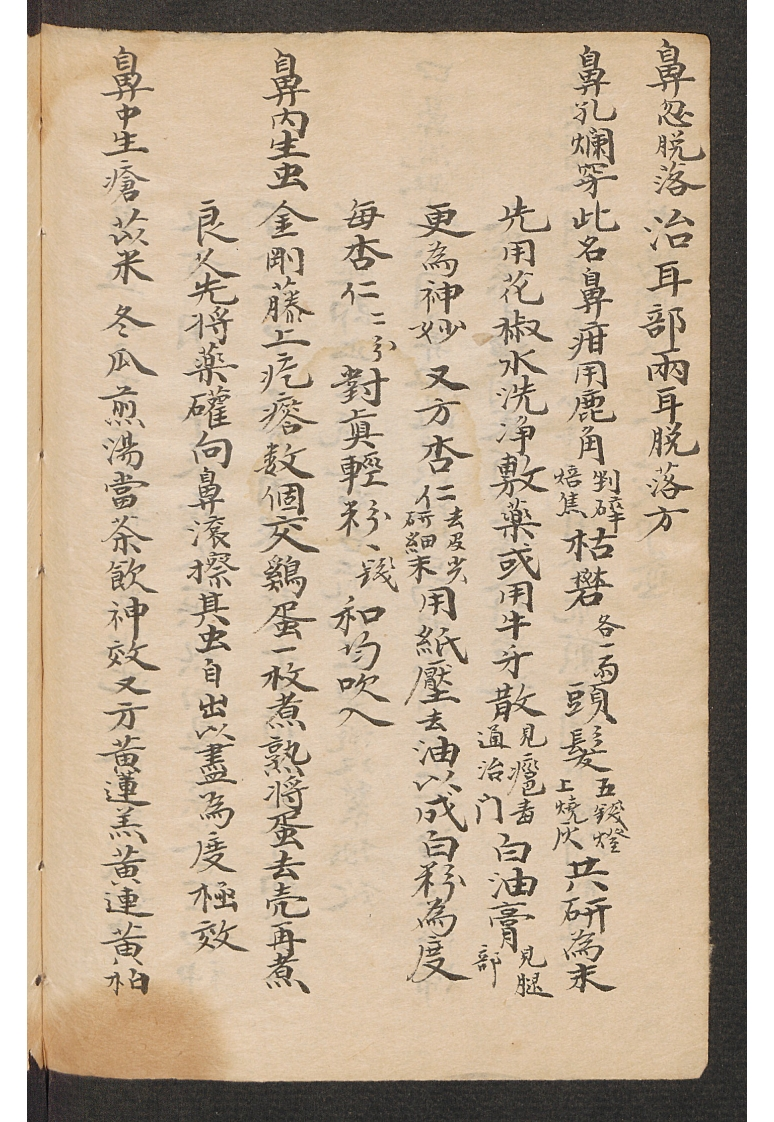 鼻忽脱落 治耳部兩耳脱落方
鼻孔爛穿 此名鼻疳用鹿角剉碎焙焦枯礬各一兩頭髮五錢燈上燒灰共研為末
先用花椒水洗净敷藥或用牛牙散見瘡毒通治门白油膏見腿部
更為神妙 又方杏仁去皮尖研細末用紙壓去油以成白粉為度
每杏仁二分對真輕粉、錢和均吹入
鼻內生虫 金剛藤上疙瘩数個交鷄蛋一枚煮熟将蛋去壳再煮
良久先将藥罐向鼻滚擦其虫自出以盡為度極效
鼻中生瘡 苡米 冬瓜煎湯當茶飲神效又方黄蓮羔黄連黄柏